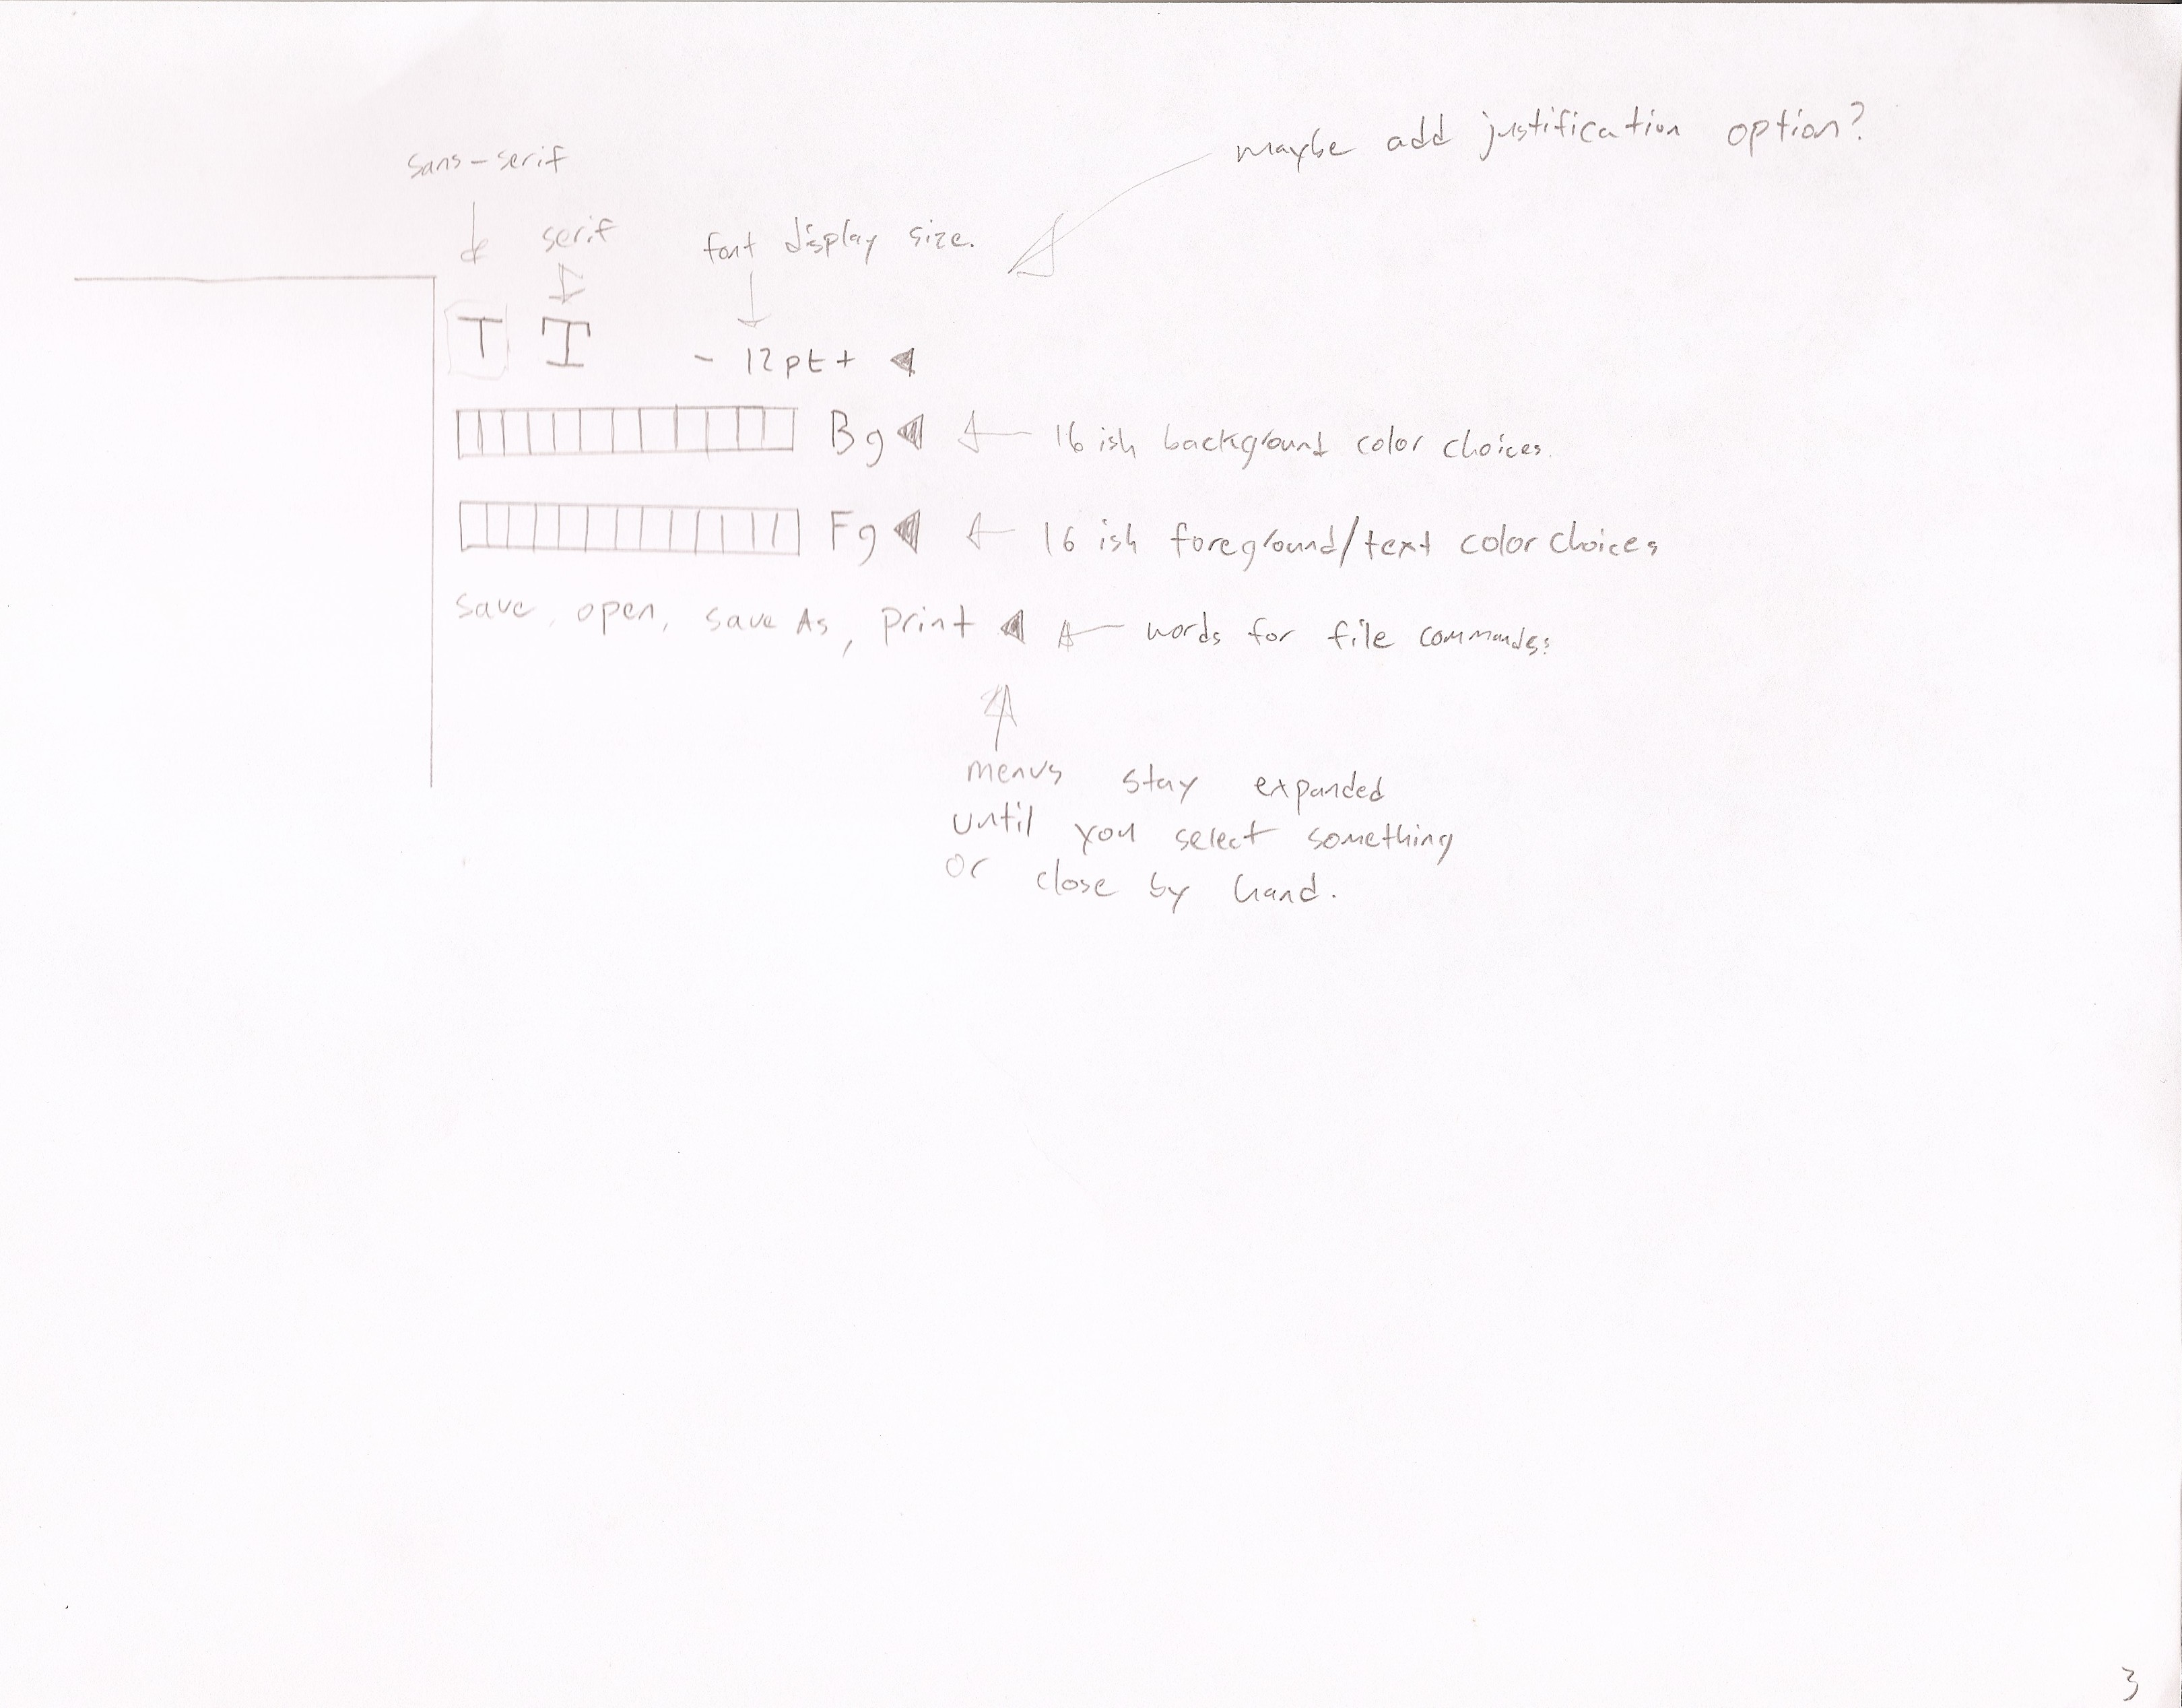 maybe add justification option?
sans-serif
serif
font display size.
T T - 12pt +
Bg 16 ish background color choices.
Fg 16 ish foreground/text color choices
save, open, save As, print words for file commands:
menus stay expanded
until you select something
or close by hand.
3